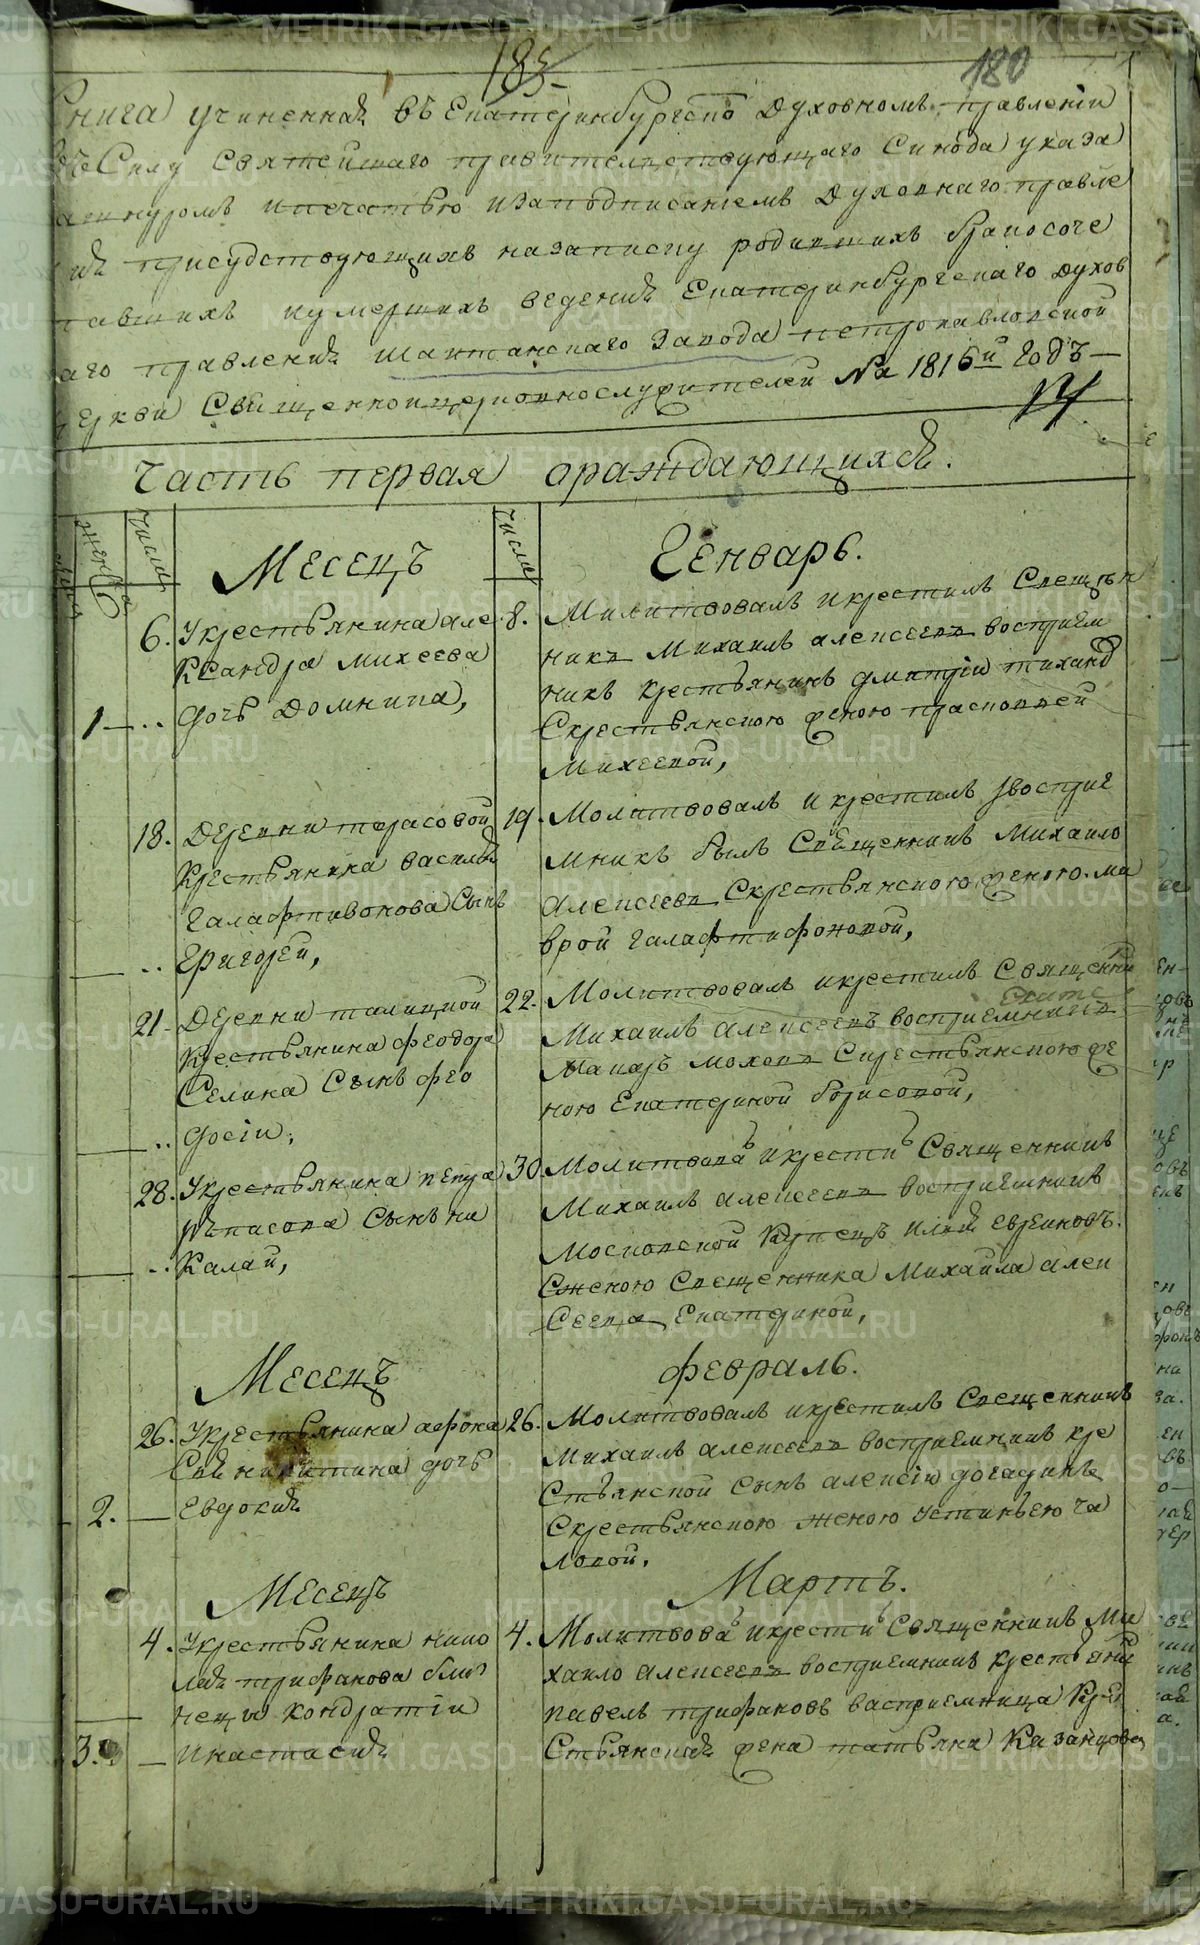 185
180
Книга учиненная въ Екатеринбургскомъ Духовномъ правленіи
Силу Святейшаго правительствующаго Синода указа
шнуромъ ипечатью изаподписаніемъ Духовнаго правле
присудствующихъ назаписку родившихъ бракосоче
тавшихъ иумершихъ веденія Екатеринбургскаго духов
наго правленія Шайтанскаго завода петропавловской
Церкви Священноицерковнослужителей На 1816й годъ
Часть первая ораждающихся.
женска
число
Месецъ
число
Генварь.
6. Укрестьянина але
ксандра михеева
1 дочь Домника,
8. Молитвовалъ икрестилъ Свещен
никъ Михаилъ алексеевъ восприем
никъ крестьянинъ дмитрій тихано
Скрестьянскою женою прасковьей
Михеевой,
18. Деревни тарасовой
Крестьянина василья
Галафтионова Сынъ
Григорей,
19. Молитвовалъ и крестилъ восприе
мникъ былъ Свещенникъ Михайло
Алексеевъ Скрестьянскою женою ма
врой галафтифоновой,
21. Деревни талицкой
Крестьянина феодора
Селина Сынъ фео
досіи,
22. Молитвовалъ икрестилъ Священни
Михаилъ алексеевъ восприемникъ
Макаръ моховъ Скрестьянскою же
ною Екатериной борисовой,
28. Укрестьянина
Сынъ ни
Калай,
30. Молитвовалъ икрестилъ Священникъ
Михаилъ алексеевъ восприемникъ
Московской Купецъ илья евреиновъ.
Сженою Свещенника Михайла алек
Сеева Екатериной,
Месецъ
февраль.
26. Укрестьянина афона
Сья никитина дочь
2. Евдокия
26. Молитвовалъ икрестилъ Свещенникъ
Михаилъ алексеевъ восприемникъ кре
Стьянской сынъ алексій догадинъ
Скрестьянскою женою устиньею ча
ловой.
Месецъ
Мартъ.
4. Укрестьянина нико
лая трифанова близ
нецы кондратіи
3. инастасия
4. Молитвовалъ икрестилъ Священникъ Ми
хайло алексеевъ восприемникъ крестьяни
павелъ трифановъ васприемница Кре
Стьянская жена татьяна Казанцова